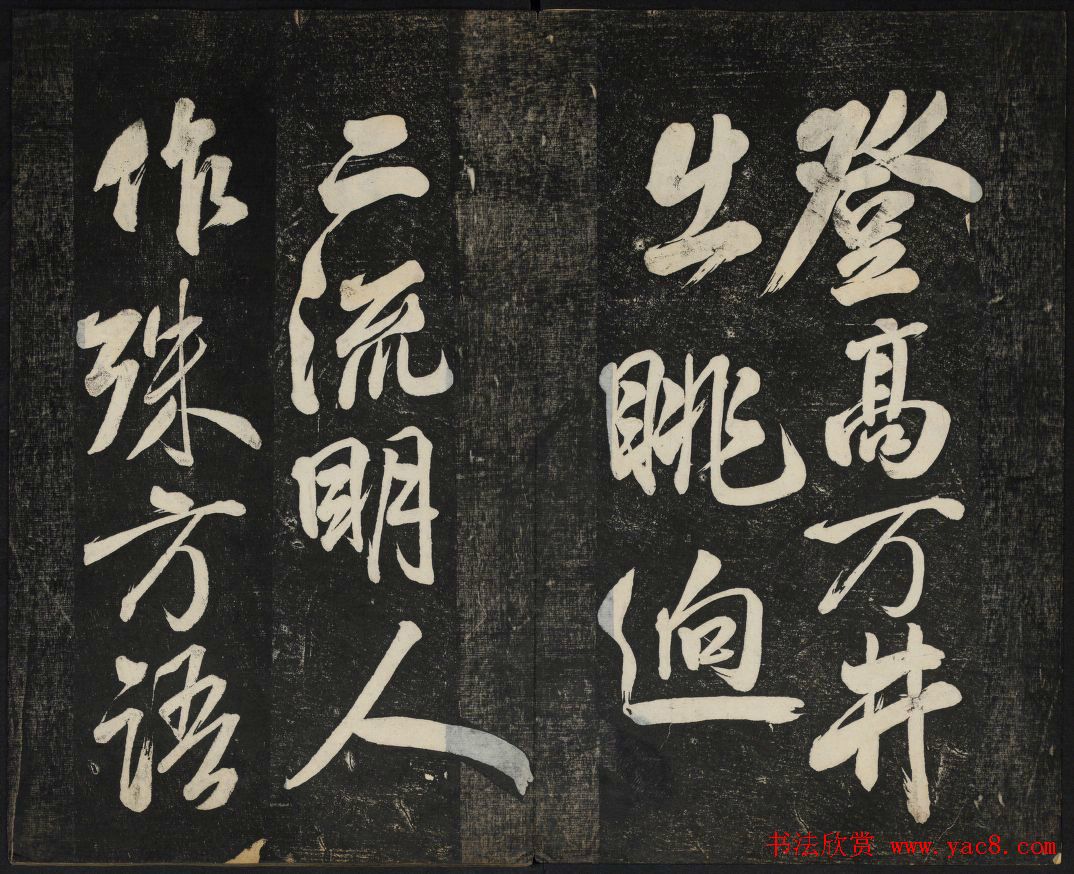 登高万井
出眺逈
二流明人
作殊方语
书法欣赏 www.yac8.com